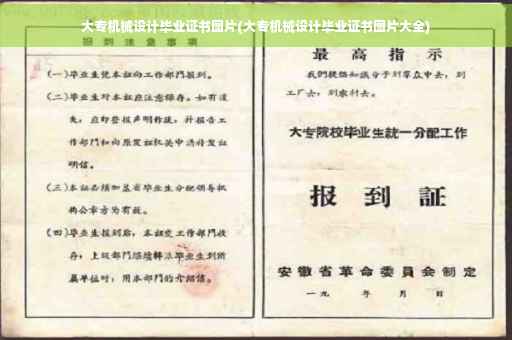 大专机械设计毕业证书图片(大专机械设计毕业证书图片大全)
报到注意事项
(一)毕业生凭本证向工作部门报到。
(二)毕业生对本证应注意保存。如有遗
失，应即登报声明作废，并报告工
作部门和向原发证机关申请补发证
明信。
(三)本证必须加盖省毕业生分配领导机
构公章方为有效。
(四)毕业生报到后，本证交工作部门收
存；上级部门
属单位时，用本部门的介绍信。
最高指示
我们提倡知识分子到群众中去，到
工厂去，到农村去。
大专院校毕业生统一分配工作
报到証
安徽省革命委員会制定
一九 年 月 日